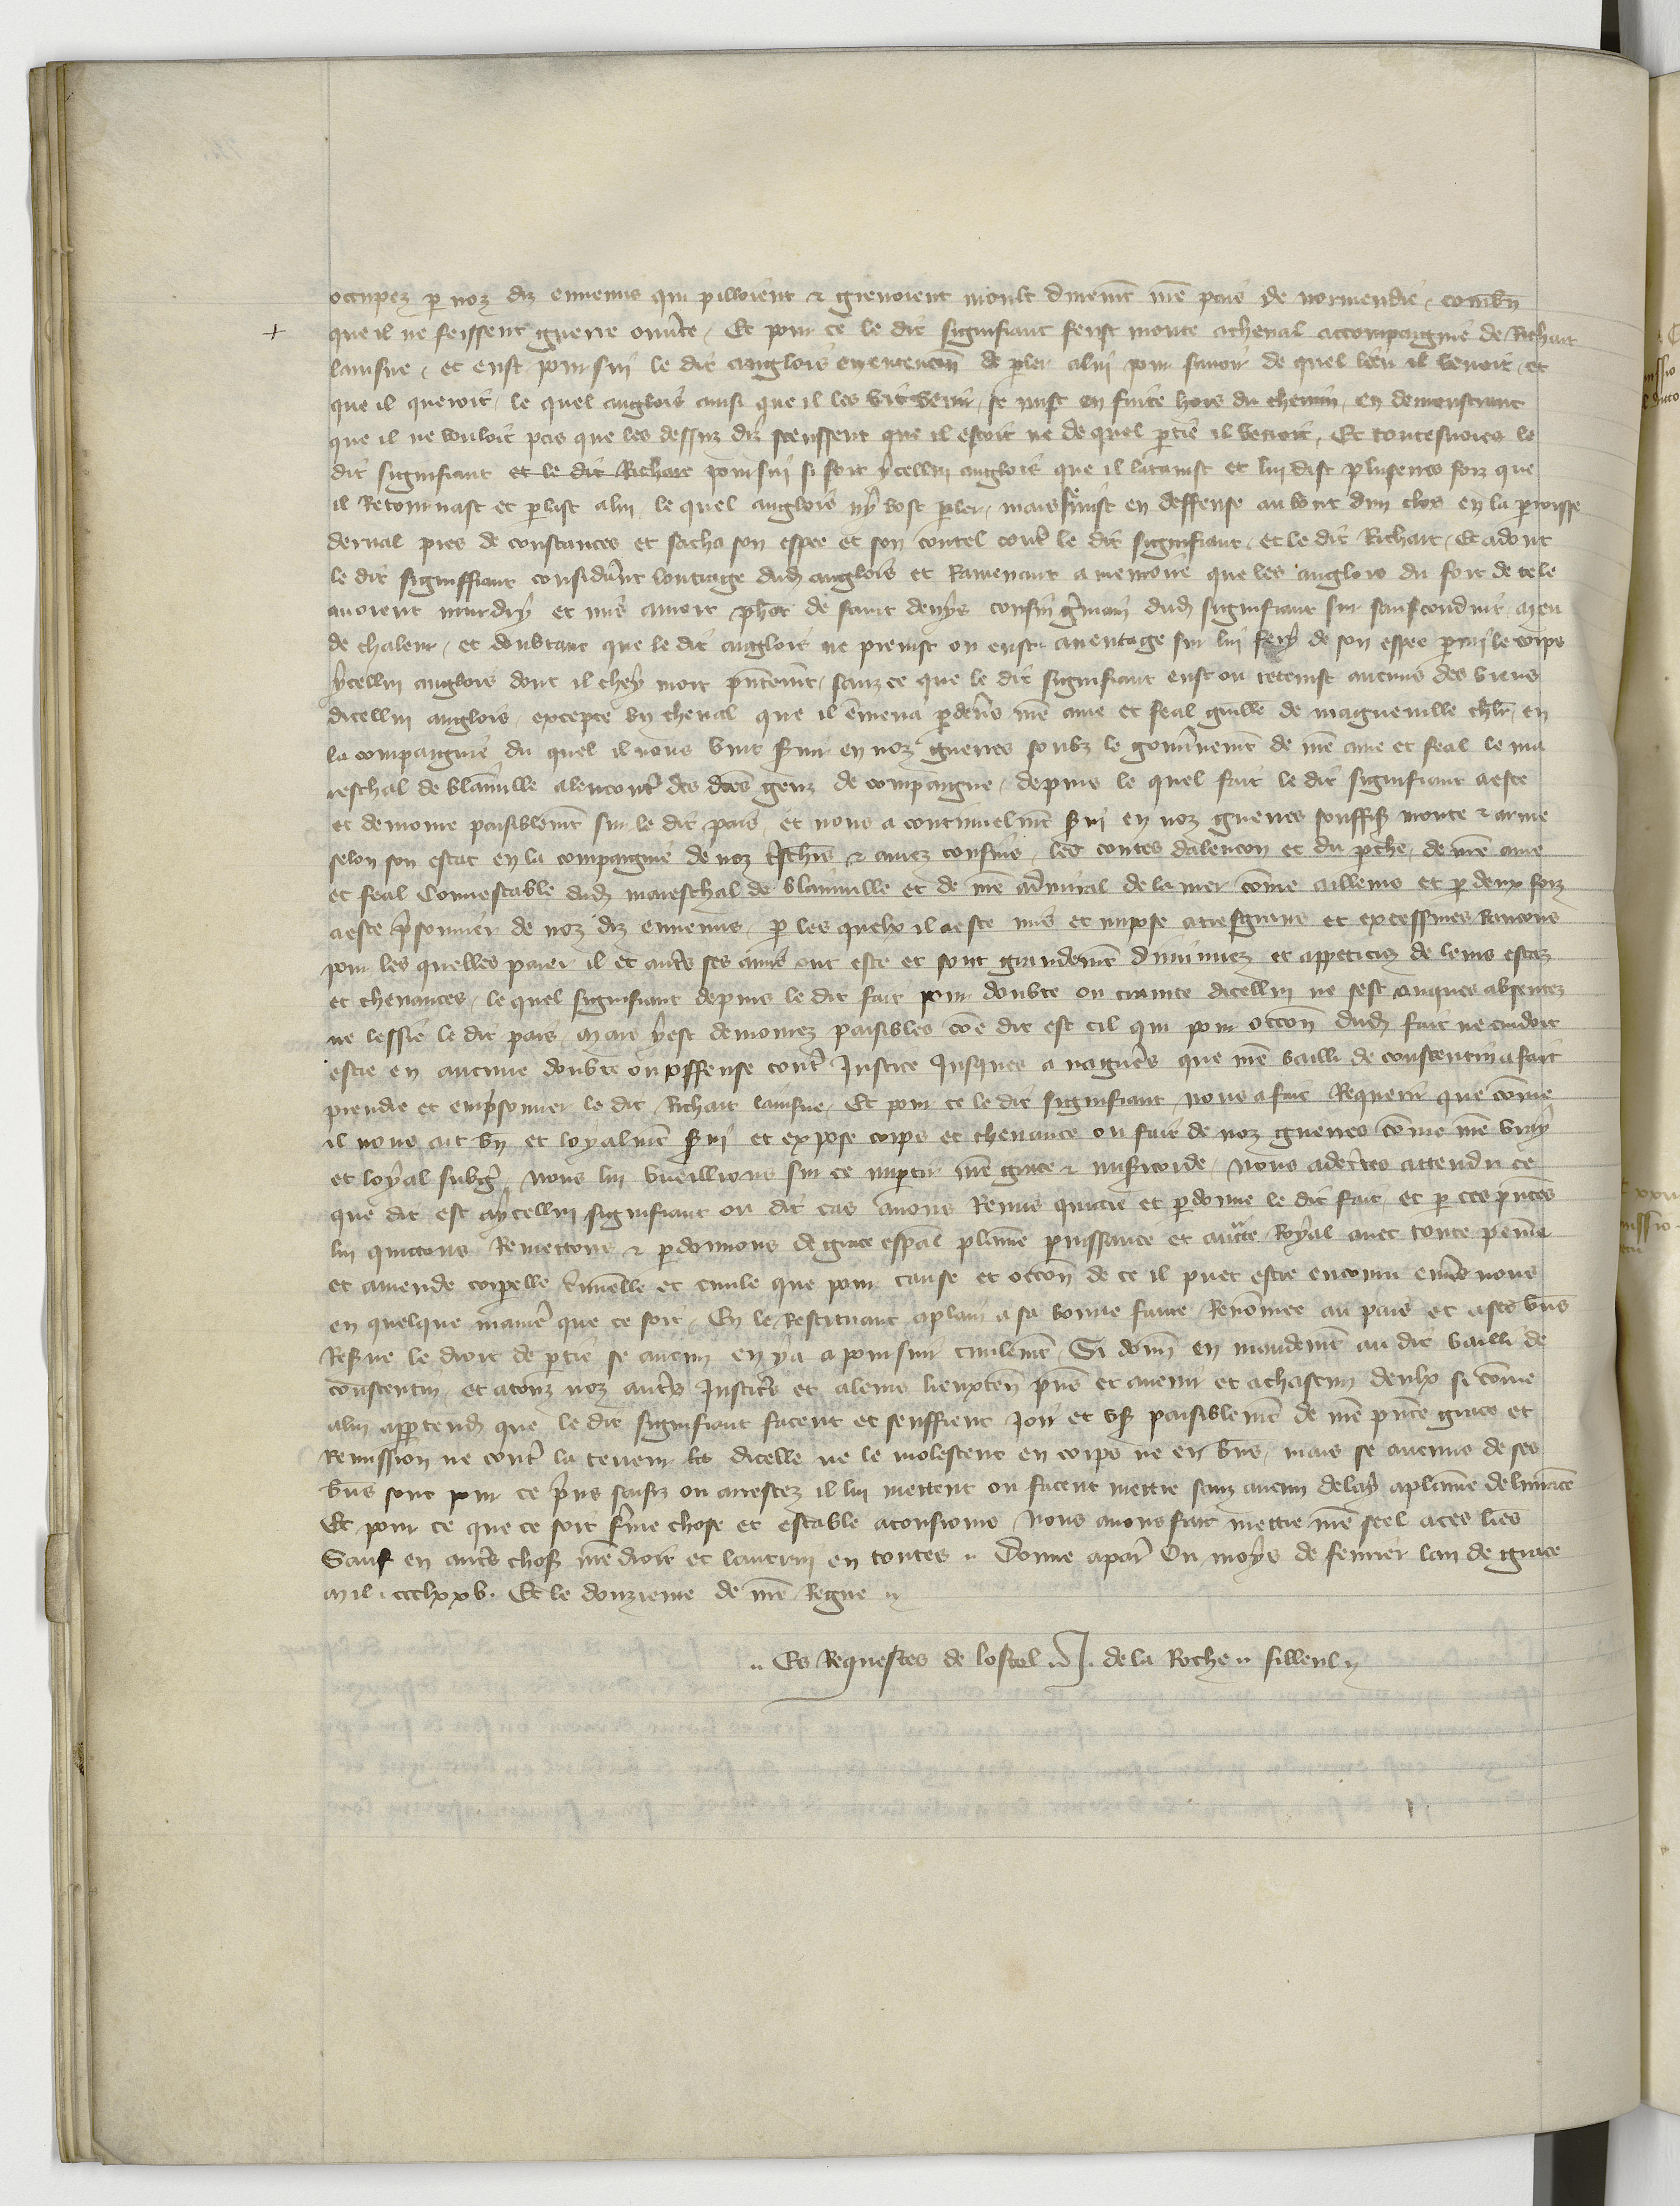 occupez p noz diz ennemis qui pilloient & grevoient moult durement nre pais de normendie, combn
+ que il ne feissent guerre ouverte, Et pour ce le dit signifiant feust monte acheval accompaignie de Richart
lainsne, et eust poursui le dit anglois en entencion de pler alui pour savoir de quel lieu il venoit, et
que il queroit, le quel anglois ainsi que il les vit venir, se mist en fuite hors du chemin, en demonstrant
que il ne vouloit pas que les dessuz diz sceussent que il estoit ne de quel ptie il venoit, Et toutesvoies le
dit signifiant et le dit Richart poursui si fort ycellui anglois que il latainst et lui dist pluseurs foiz que
il Retournast et plast alui, le quel anglois ny vost pler, mais se mist en deffense au bout dun clos en la proisse
derval pres de constances et sacha son espee et son coutel contre le dit signifiant, et le dit Richart, Et adont
le dit signiffiant considerant loutrage dud anglois et Ramenant a memoire que les anglois du fort de tele
avoient murdry et mis amort phot de saint denys cousin germain dud signifiant sur saufconduit, meu
de chaleur, et doubtant que le dit anglois ne preinst ou eust aventage sur lui fery de son espee pmi le corps
ycellui anglois dont il chey mort pntement, sanz ce que le dit signifiant eust ou reteinst aucuns des biens
dicellui anglois, excepte un cheval que il emena pdevers nre ame et feal guille de magneville chlr, en
la compaignie du quel il nous vint servir en noz guerres soubz le gouvernement de nre ame et feal le ma
reschal de blainville alencontre des dces genz de compaigne, depuis le quel fait le dit signifiant aeste
et demoure paisiblement sur le dit pais, et nous a continuelment servi en noz guerres souffis monte & arme
selon son estat en la compaignie de noz treschers & amez cousins, les contes dalencon et du pche, de nre ame
et feal Connestable dud mareschal de blainville et de nre admiral de la mer comme ailleurs et p deux foiz
aeste prisonnier de noz diz ennemis, p les quelx il aeste mis et impose atresgrans et excessives Rancons
pour les quelles paier il et autres ses amis ont este et sont grandement diminuez et appeticiez de leurs estaz
et chevances, le quel signifiant depuis le dit fait pour doubte ou crainte dicellui ne sest onques absentez
ne lessie le dit pais, mais yest demourez paisibles coe dit est cil qui pour occon dud fait ne cuidoit
estre en aucune doubte ou offense contre Justice Jusques a nagueres que nre bailli de constentin a fait
prendre et emprisonner le dit Richart lainsne, Et pour ce le dit signifiant nous a fait Requerir que comme
il nous ait bn et loyalment servi et expose corps et chevance ou fait de noz guerres comme nre vray
et loyal subget, Nous lui vueillions sur ce impartir nre grace & misericorde, Nous adecertes attendu ce
que dit est aycellui signifiant ou dit cas avons Remis quictie et pdonne le dit fait, et p ces pntes
lui quictons Remettons & pdonnons de grace espal plaine puissance et aucte Royal avec toute peine
et amende corpelle criminelle et civile que pour cause et occon de ce il puet estre encouru envers nous
en quelque maniere que ce soit, En le Restituant aplain a sa bonne fame, Renommee au pais et ases biens
Reserve le droit de ptie se aucun en y a a poursuir civilement, Si donn en mandement au dit bailli de
constentin, et atouz noz autres Justiciers et aleurs lieuxten pns et avenir et achascun deulx si comme
alui apptendra que le dit signifiant facent et seuffrent Joir et user paisiblement de nre pnte grace et
Remission ne contre la teneur dicelle ne le molestent en corps ne en biens, mais se aucuns de ses
biens sont pour ce prins saisiz ou arrestez il lui mettent ou facent mettre sanz aucun delay aplaine delivrance
Et pour ce que ce soit ferme chose et estable atousiours Nous avons fait mettre nre seel aces lres
Sauf en autres choses nre droit et lautrui en toutes, Donne apar Ou moys de fevrier lan de grace
mil ccclxxv. Et le douzieme de nre Regne
Es Requestes de lostel J. de la Roche filleul